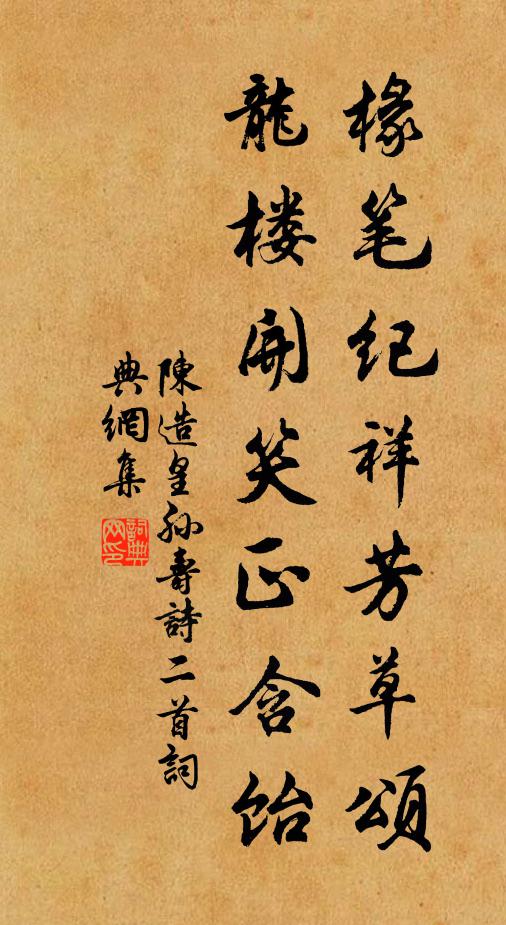 椽笔纪祥芳草頌
龍楼開笑正含飴
陳造皇孙壽詩二首詞
典網集
詞典
网印